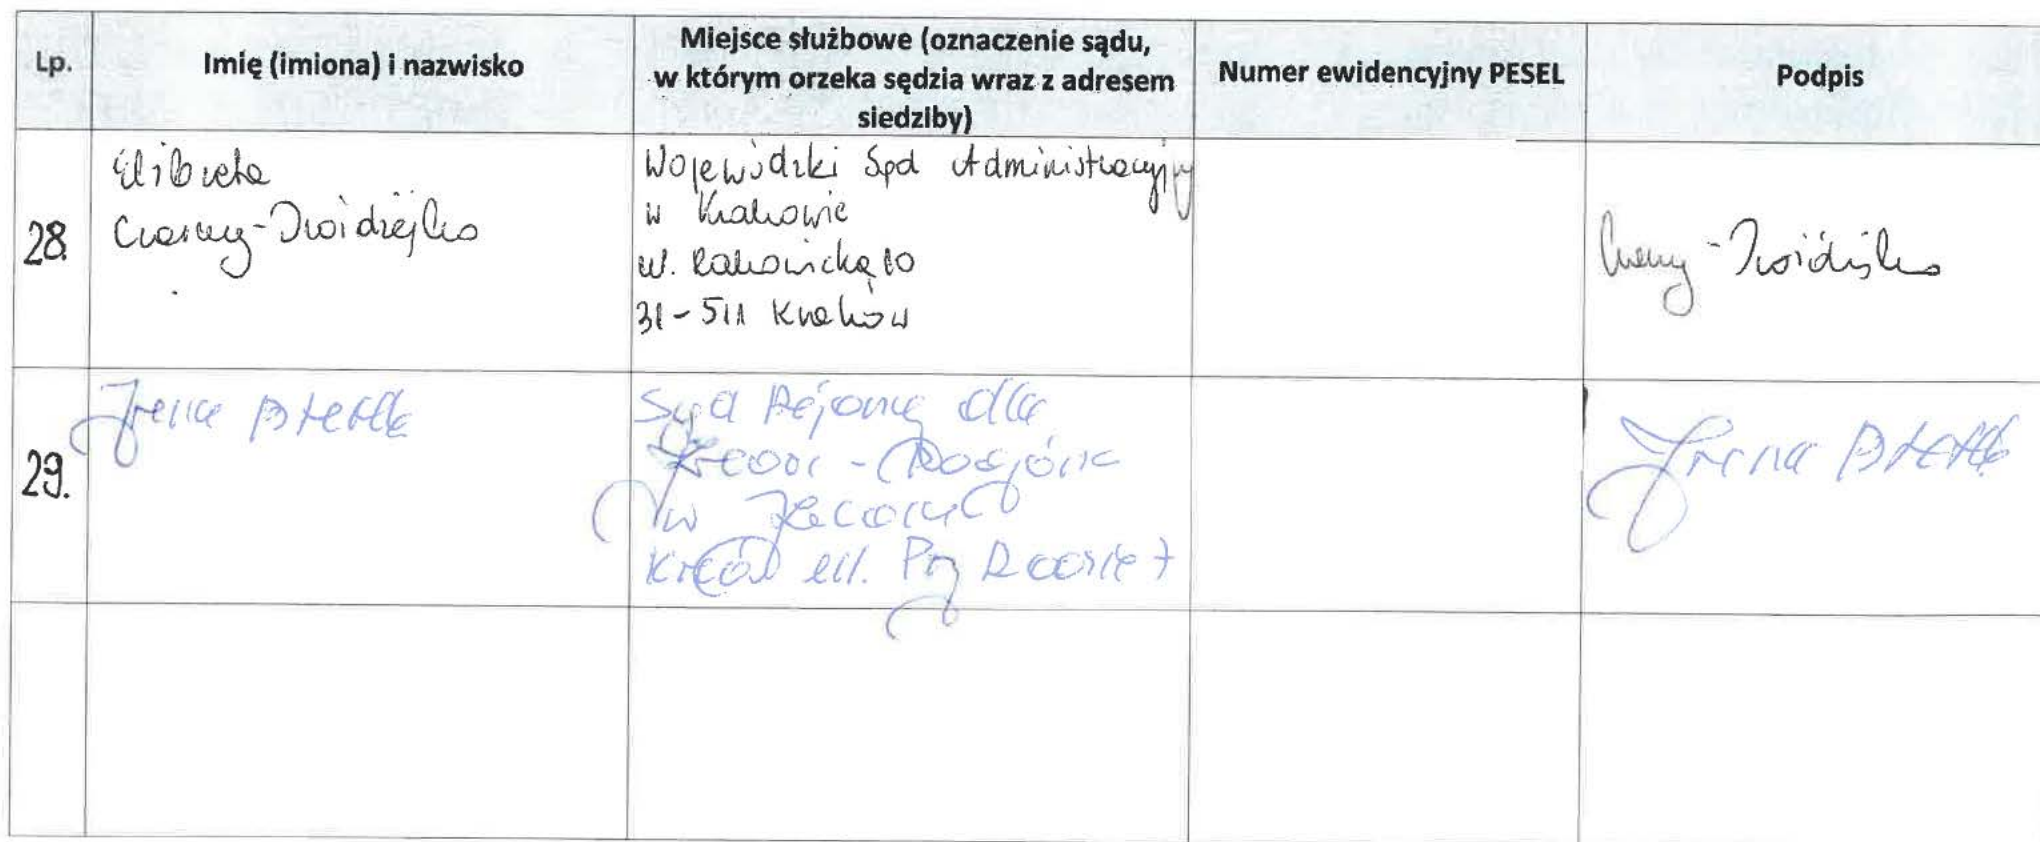 Lp.
Imię (imiona) i nazwisko
Miejsce służbowe (oznaczenie sądu,
w którym orzeka sędzia wraz z adresem
siedziby)
Numer ewidencyjny PESEL
Podpis
28.
Elżbieta
Czarny-Drożdżejko
Wojewódzki Sąd Administracyjny
w Krakowie
ul. Rakowicka 10
31-511 Kraków
Czarny-Drożdżejko
29.
Irena
Sąd Rejonowy dla
w
Kraków ul. Przy Rondzie 7
Irena